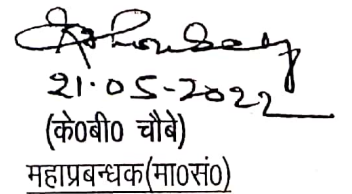 21.05-2022
(के0बी0 चौबे)
महाप्रबन्धक(मा0सं0)